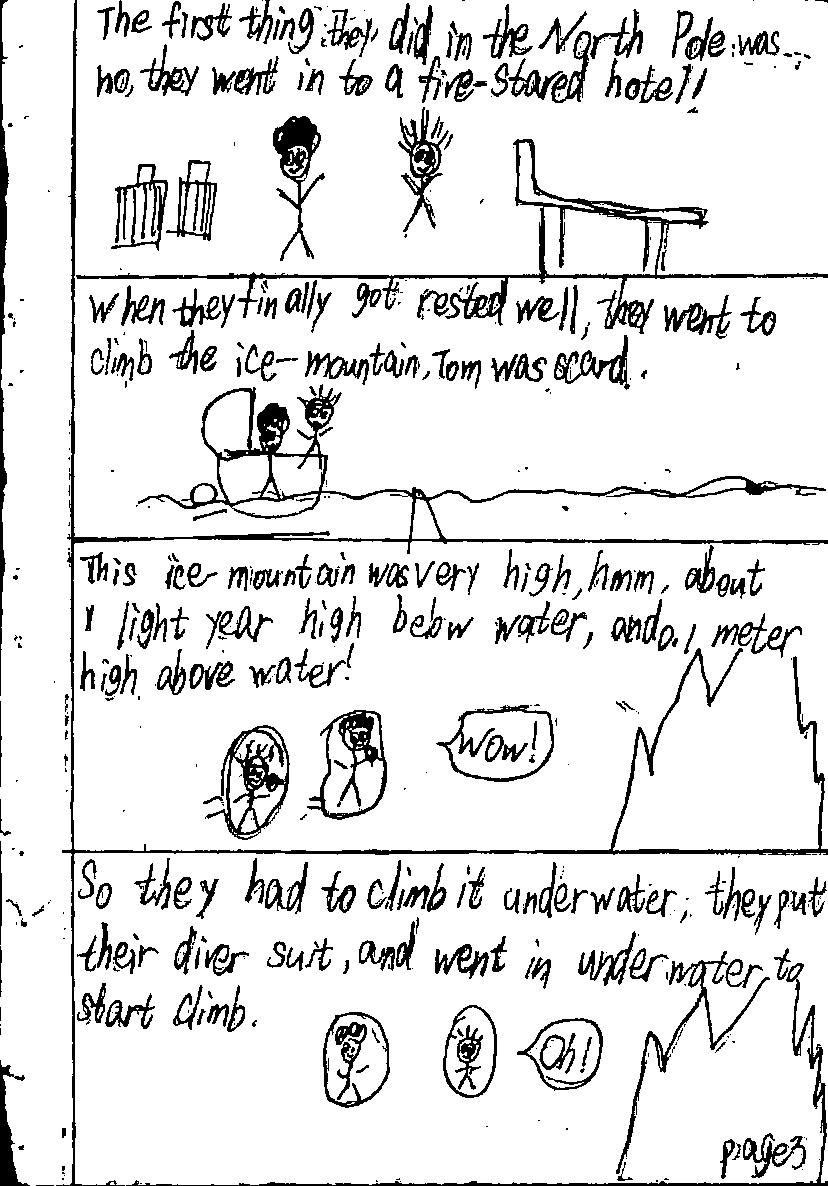 The first thing they did in the North Pole was...
no, they went in to a five-stared hotel!
When they finally got rested well, they went to
climb the ice-mountain, Tom was scard.
This ice-mountain was very high, hmm, about
1 light year high below water, and 0.1 meter
high above water!
Wow!
So they had to climb it underwater, they put
their diver suit, and went in underwater to
start climb.
Oh!
page3